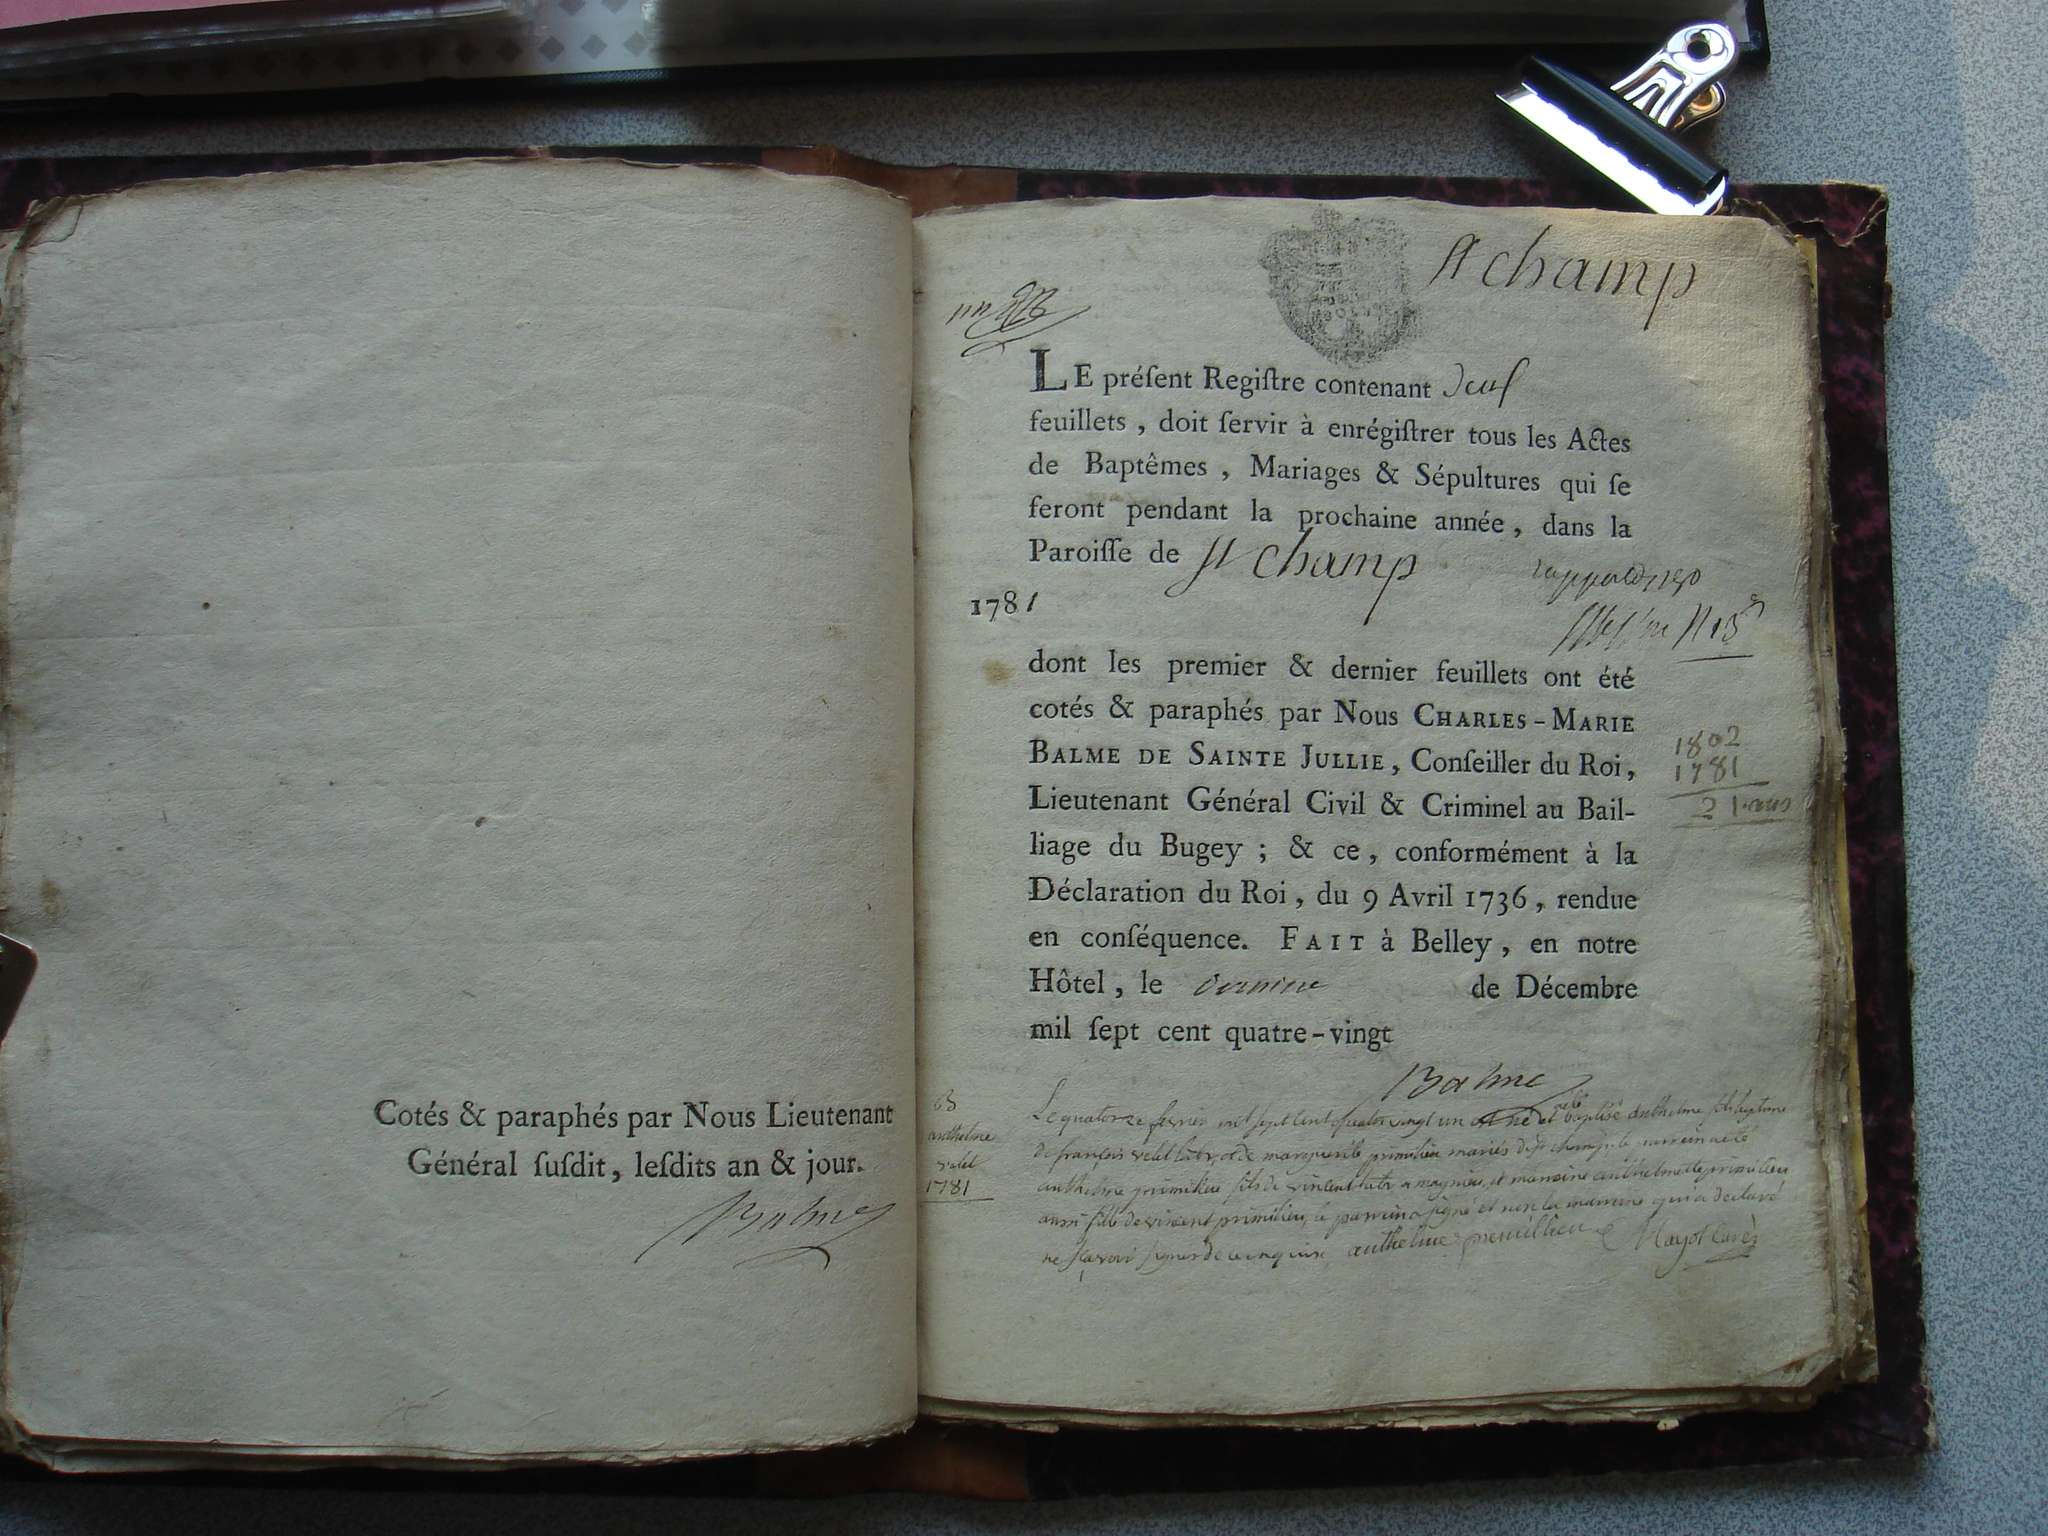 Cotés & paraphés par Nous Lieutenant
Général ſuſdit, leſdits an & jour.
Balme
St champ
LE préſent Regiſtre contenant
feuillets, doit ſervir à enrégiſtrer tous les Actes
de Baptêmes, Mariages & Sépultures qui ſe
feront pendant la prochaine année, dans la
Paroiſſe de St champ
1781
dont les premier & dernier feuillets ont été
cotés & paraphés par Nous CHARLES-MARIE
BALME DE SAINTE JULLIE, Conſeiller du Roi,
Lieutenant Général Civil & Criminel au Bail-
liage du Bugey ; & ce, conformément à la
Déclaration du Roi, du 9 Avril 1736, rendue
en conſéquence. FAIT à Belley, en notre
Hôtel, le de Décembre
mil ſept cent quatre-vingt
Balme
1802
1781
21
anthelme
velet
1781
Le quatorze fevrier mil sept cent quatre vingt un est né et baptisé anthelme fils legitime
de françois velet et de marguerite primilieu mariés de st champ le parrein a été
anthelme primilieu fils de vincent a magnieu, et marreine anthelmette primilieu
aussi fille de vincent primilieu, le parrein a signé et non la marreine qui a declaré
ne sçavoir signer de ce enquise anthelme premillieu Mayot Curé